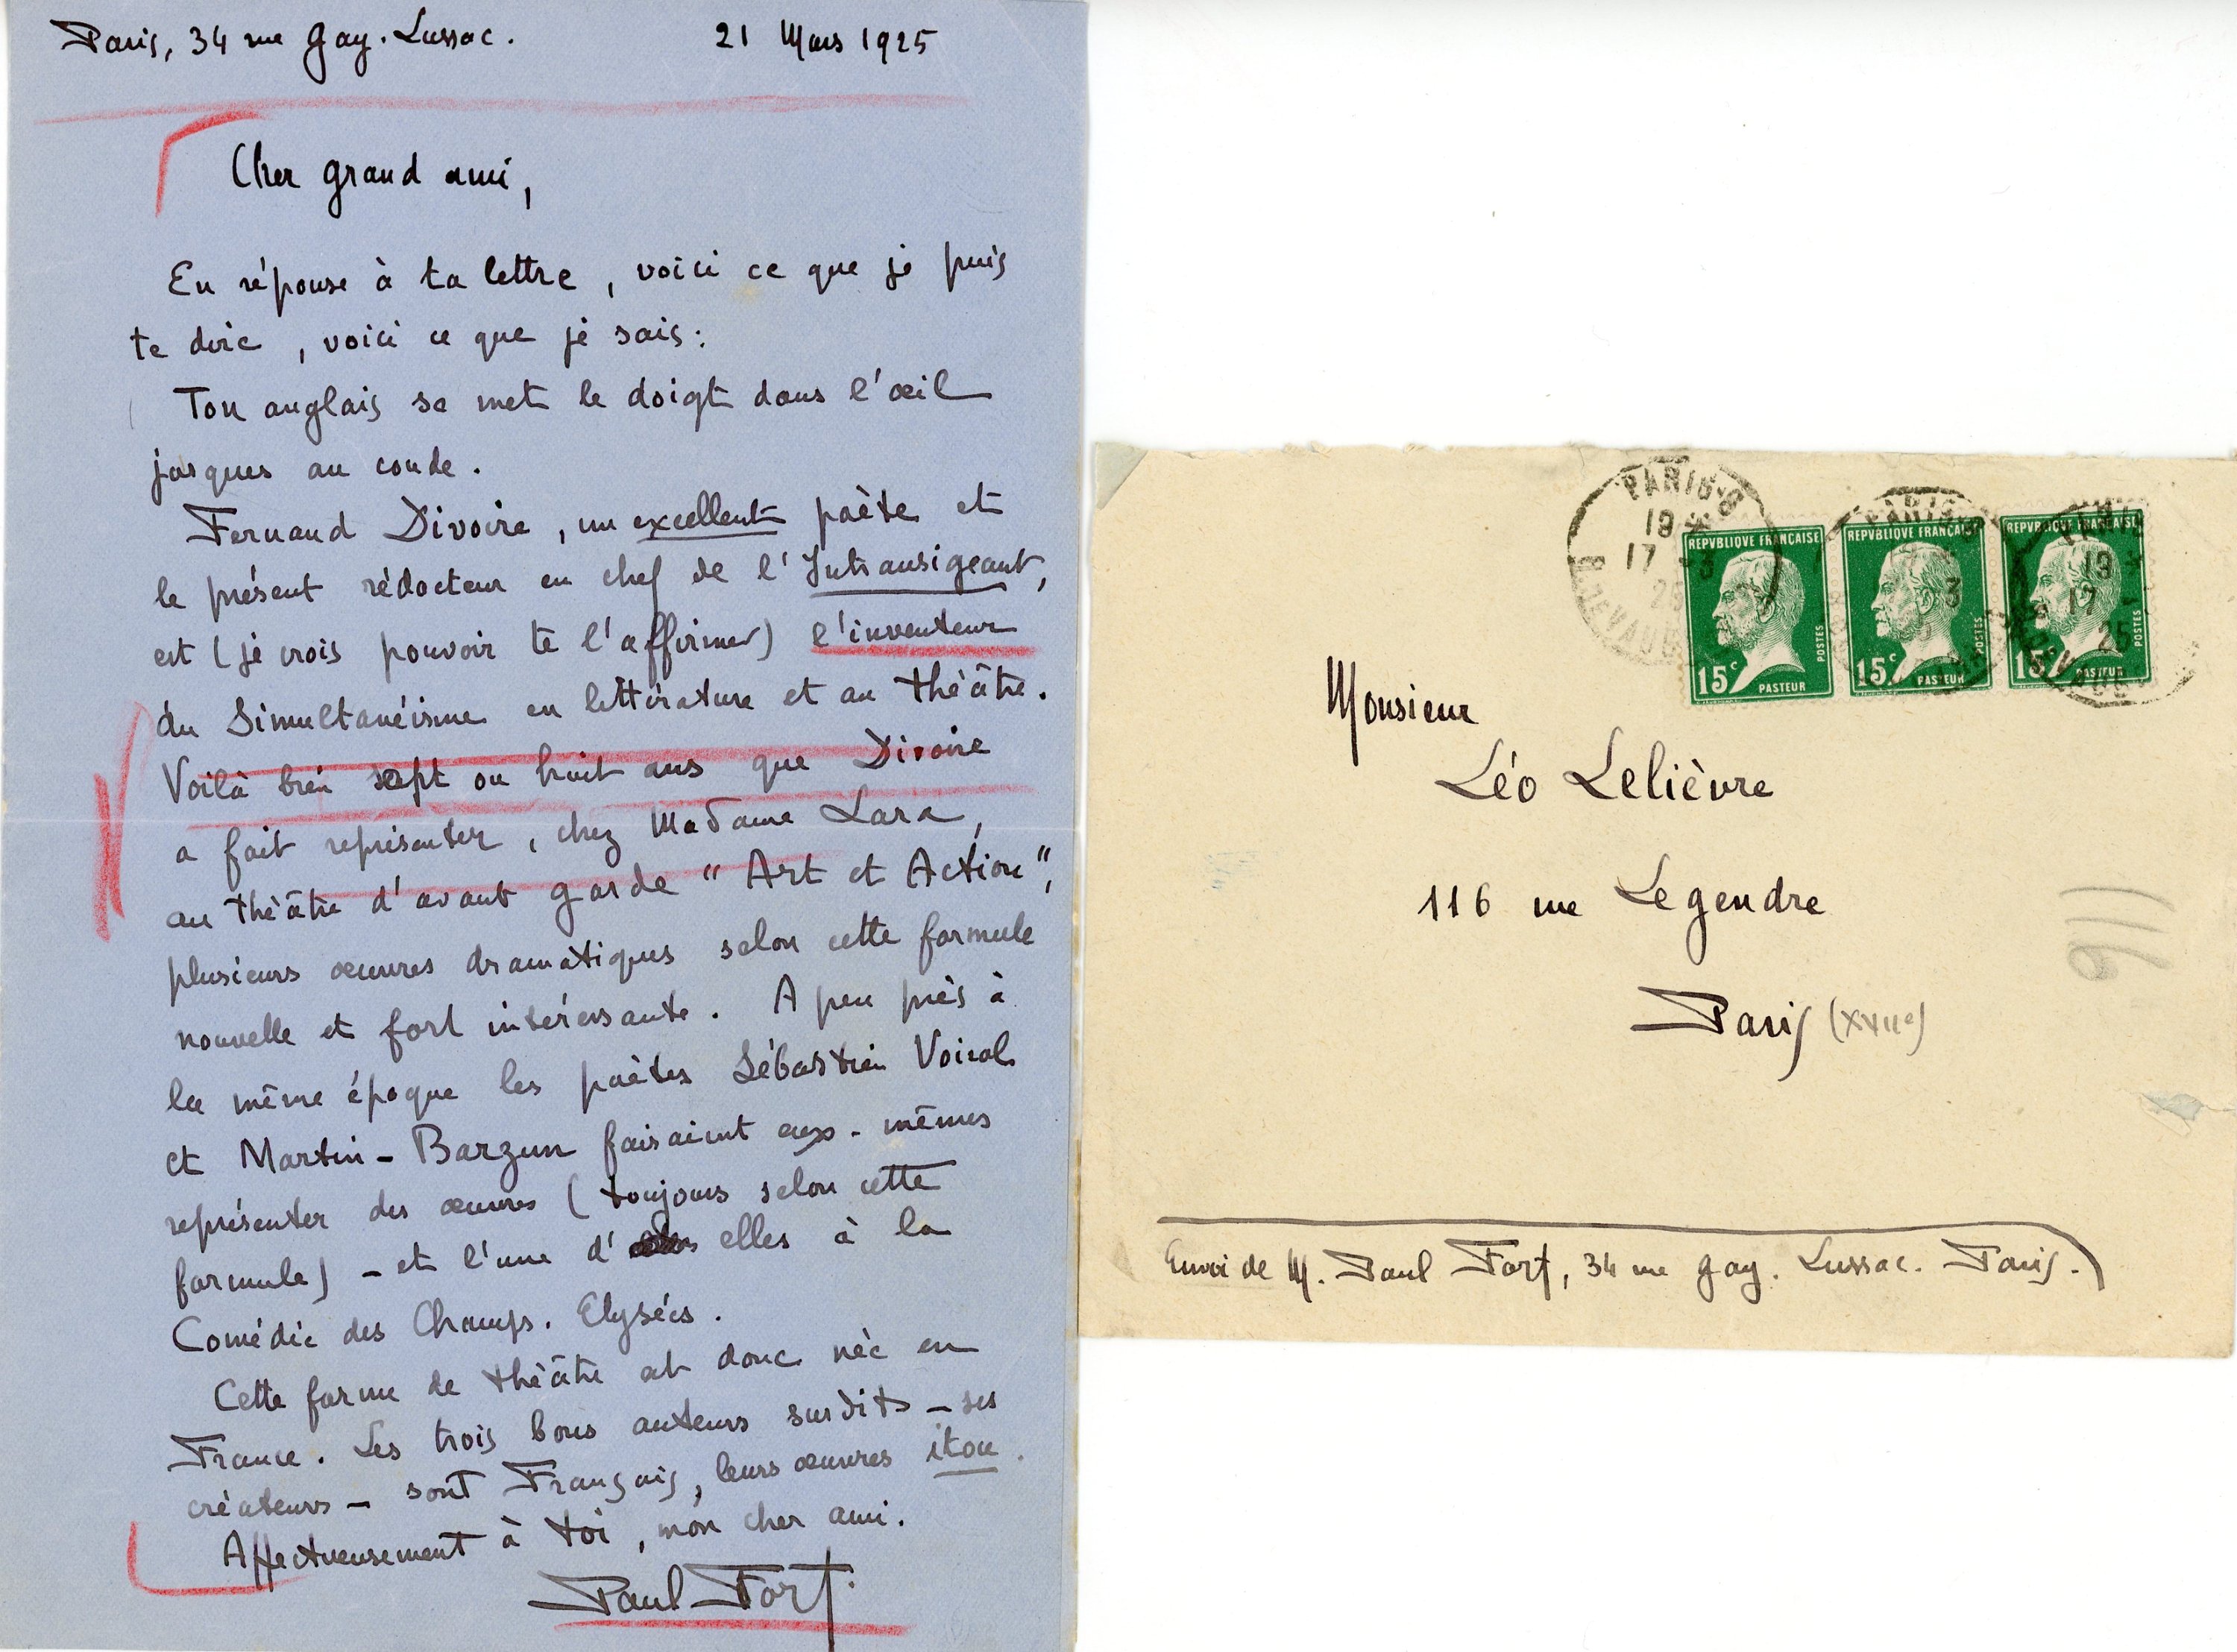 Paris, 34 rue Gay-Lussac. 21 Mars 1925
Cher grand ami,
En réponse à ta lettre, voici ce que je puis
te dire, voici ce que je sais:
Ton anglais se met le doigt dans l'œil
jusques au coude.
Fernand Divoire, un excellent poète et
le présent rédacteur en chef de l'Intransigeant,
est (je crois pouvoir te l'affirmer) l'inventeur
du Simultanéisme en littérature et au théâtre.
Voilà bien sept ou huit ans que Divoire
a fait représenter, chez Madame Lara,
au théâtre d'avant garde "Art et Action",
plusieurs œuvres dramatiques selon cette formule
nouvelle et fort intéressante. A peu près à
la même époque les poètes Sébastien Voirol
et Martin-Barzun faisaient eux-mêmes
représenter des œuvres (toujours selon cette
formule) - et l'une d' elles à la
Comédie des Champs-Elysées.
Cette forme de théâtre est donc née en
France. Les trois bons auteurs susdits - ses
créateurs - sont Français, leurs œuvres itou.
Affectueusement à toi, mon cher ami.
Paul Fort.
PARIS-8
19
17 -3
25
REPVBLIQVE FRANÇAISE
15c
PASTEUR
POSTES
REPVBLIQVE FRANÇAISE
15c
PASTEUR
POSTES
REPVBLIQVE FRANÇAISE
15c
PASTEUR
POSTES
19
17
25
Monsieur
Léo Lelièvre
116 rue Legendre
Paris (XVIIe)
116
Envoi de M. Paul Fort, 34 rue Gay-Lussac. Paris.